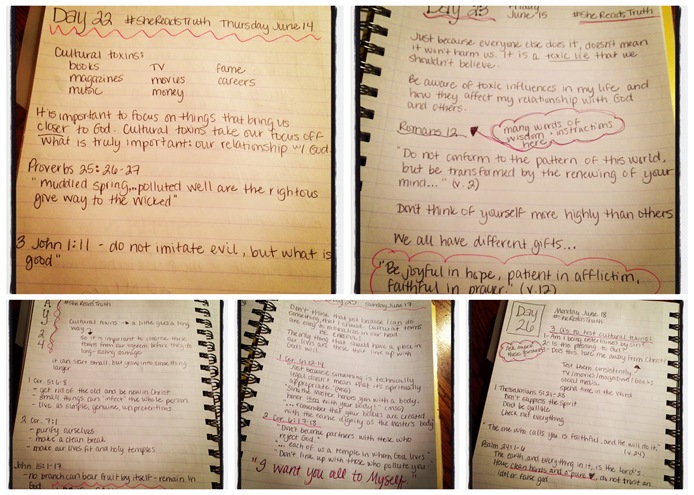 Day 22 #SheReadsTruth Thursday June 14
Cultural toxins:
books TV fame
magazines movies careers
music money
It is important to focus on things that bring us
closer to God. Cultural toxins take our focus off
what is truly important: our relationship w/ God.
Proverbs 25:26-27
"muddled spring...polluted well are the rightous
give way to the wicked"
3 John 1:11 - do not imitate evil, but what is
good"
Day 23 Friday
June 15 #SheReadsTruth
Just because everyone else does it, doesn't mean
it won't harm us. It is a toxic lie that we
shouldn't believe.
Be aware of toxic influences in my life and
how they affect my relationship with God
and others.
Romans 12
many words of
wisdom + instructions
here
"Do not conform to the pattern of this world,
but be transformed by the renewing of your
mind..." (v. 2)
Don't think of yourself more highly than others
We all have different gifts...
"Be joyful in hope, patient in affliction,
faithful in prayer." (v.12)
#SheReadsTruth
Cultural toxins → a little goes a long
way
so it is important to
long-lasting damage
it can start small, but grow into something
larger
1 Cor. 5:6-8
- get rid of the old and be new in Christ
- small things can "infect" the whole person
- live as simple, genuine, unpretentious
2 Cor. 7:1
- purify ourselves
- make a clean break
- make our lives fit and holy temples
John 15:1-17
- no branch can bear fruit by itself - remain in
God
Sunday June 17
Don't think that just because I can do
something, that I should. Cultural toxins
are easy to rationalize in our head
The only thing that should have a piece in
our lives are those that line up with
God's will.
1 Cor. 6:12-14
"Just because something is technically
legal doesn't mean that it's spiritually
appropriate." (MSG)
"Since the master honors you with a body,
honor him with your body!" (MSG)
... remember that your bodies are created
with the same dignity as the Master's body
2 Cor. 6:17-18
"Don't become partners with those who
reject God."
"...each of us a temple in whom God lives"
"Don't link up with those who pollute you
"I want you all to Myself"
Day
26
Monday June 18
#SheReadsTruth
3 Q's to test cultural toxins:
- Am I being entertained by sin?
- Is this pleasing to God?
- Does this take me away from Christ?
Test them consistently
TV/movies/magazines/books
social media
spend time in the word
1 Thessalonians 5:21-28
Don't suppress the spirit
Don't be gullible
Check out everything
"The one who calls you is faithful, and he will do it."
(v.24)
Psalm 24:1-6
The earth, and everything in it, is the Lord's.
Have clean hands and a pure, do not trust an
idol or false god